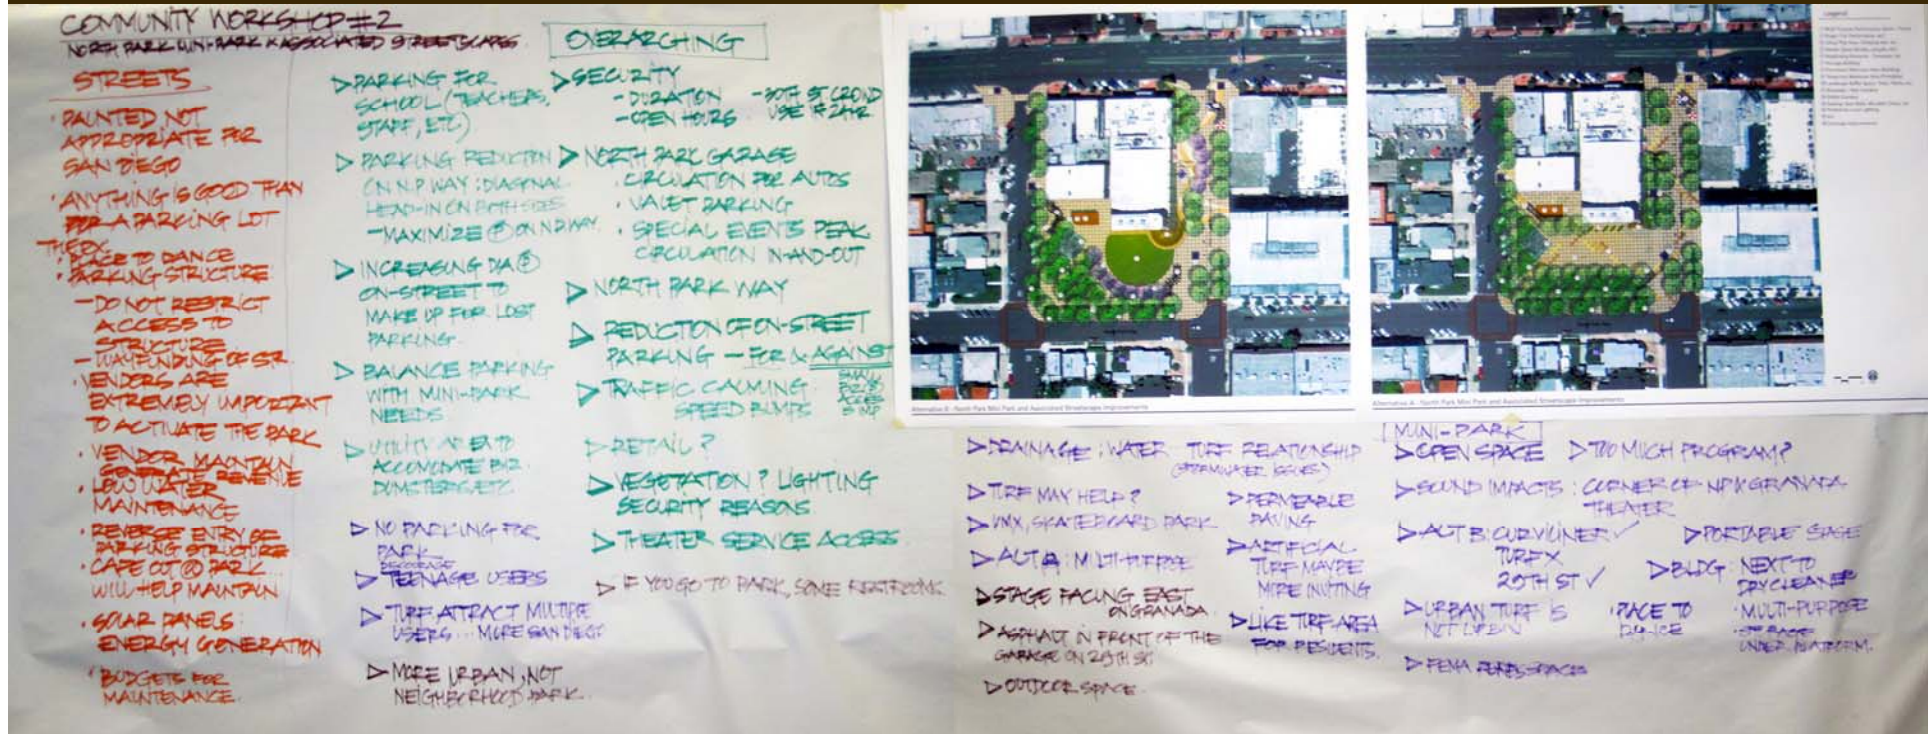 COMMUNITY WORKSHOP #2
NORTH PARK MINI-PARK & ASSOCIATED STREETSCAPES
STREETS
· PAINTED NOT
APPROPRIATE FOR
SAN DIEGO
· ANYTHING IS GOOD THAN
FOR A PARKING LOT
· PLACE TO DANCE
· PARKING STRUCTURE
- DO NOT RESTRICT
ACCESS TO
STRUCTURE
- WAYFINDING OF STR.
· VENDORS ARE
EXTREMELY IMPORTANT
TO ACTIVATE THE PARK
· VENDOR MAINTAIN
GENERATE REVENUE
· LOW WATER
MAINTENANCE
· REVERSE ENTRY OF
PARKING STRUCTURE
· CAFE OUT @ PARK
WILL HELP MAINTAIN
· SOLAR PANELS:
ENERGY GENERATION
· BUDGETS FOR
MAINTENANCE.
▷ PARKING FOR
SCHOOL (TEACHERS,
STAFF, ETC)
▷ PARKING REDUCTION
ON N.P WAY: DIAGONAL
HEAD-IN ON BOTH SIDES
- MAXIMIZE Ⓟ ON N.P WAY.
▷ INCREASING DIA Ⓟ
ON-STREET TO
MAKE UP FOR LOST
PARKING.
▷ BALANCE PARKING
WITH MINI-PARK
NEEDS
▷ UTILITY AREA TO
ACCOMODATE BIZ.
DUMSTERS, ETC
▷ NO PARKING FOR
PARK
DISCOURAGE
▷ TEENAGE USERS
▷ TURF ATTRACT MULTIPLE
USERS ... MORE SAN DIEGO
▷ MORE URBAN, NOT
NEIGHBORHOOD PARK.
OVERARCHING
▷ SECURITY
- DURATION
- OPEN HOURS
- 30TH ST CROWD
USE IF 24HR
▷ NORTH PARK GARAGE
· CIRCULATION FOR AUTOS
· VALET PARKING
· SPECIAL EVENTS PEAK
CIRCULATION IN-AND-OUT
▷ NORTH PARK WAY
▷ REDUCTION OF ON-STREET
PARKING - FOR & AGAINST
SMALL
BIZ
ACCESS
IS IMP
▷ TRAFFIC CALMING
SPEED BUMPS
▷ RETAIL?
▷ VEGETATION? LIGHTING
SECURITY REASONS
▷ THEATER SERVICE ACCESS.
▷ IF YOU GO TO PARK, SOME RESTROOMS.
Alternative B - North Park Mini Park and Associated Streetscape Improvements
Alternative A - North Park Mini Park and Associated Streetscape Improvements
Legend
▷ DRAINAGE: WATER TURF RELATIONSHIP
(STORMWATER ISSUES)
▷ TURF MAY HELP?
▷ VMX, SKATEBOARD PARK
▷ ALT A: MULTI-PURPOSE
▷ STAGE FACING EAST
ON GRANADA.
▷ ASPHALT IN FRONT OF THE
GARAGE ON 29TH ST.
▷ OUTDOOR SPACE.
▷ PERMEABLE
PAVING
▷ ARTIFICIAL
TURF MAYBE
MORE INVITING
▷ LIKE TURF AREA
FOR RESIDENTS.
MINI-PARK
▷ OPEN SPACE
▷ TOO MUCH PROGRAM?
▷ SOUND IMPACTS: CORNER OF NPW GRANADA
THEATER
▷ ALT B: CURVILINER ✓
TURF X
29TH ST ✓
▷ PORTABLE STAGE
▷ BLDG: NEXT TO
DRYCLEANER
· MULTI-PURPOSE
· STORAGE
UNDER PLATFORM.
▷ URBAN TURF IS
NOT URBAN
· PLACE TO
DANCE
▷ FEMA